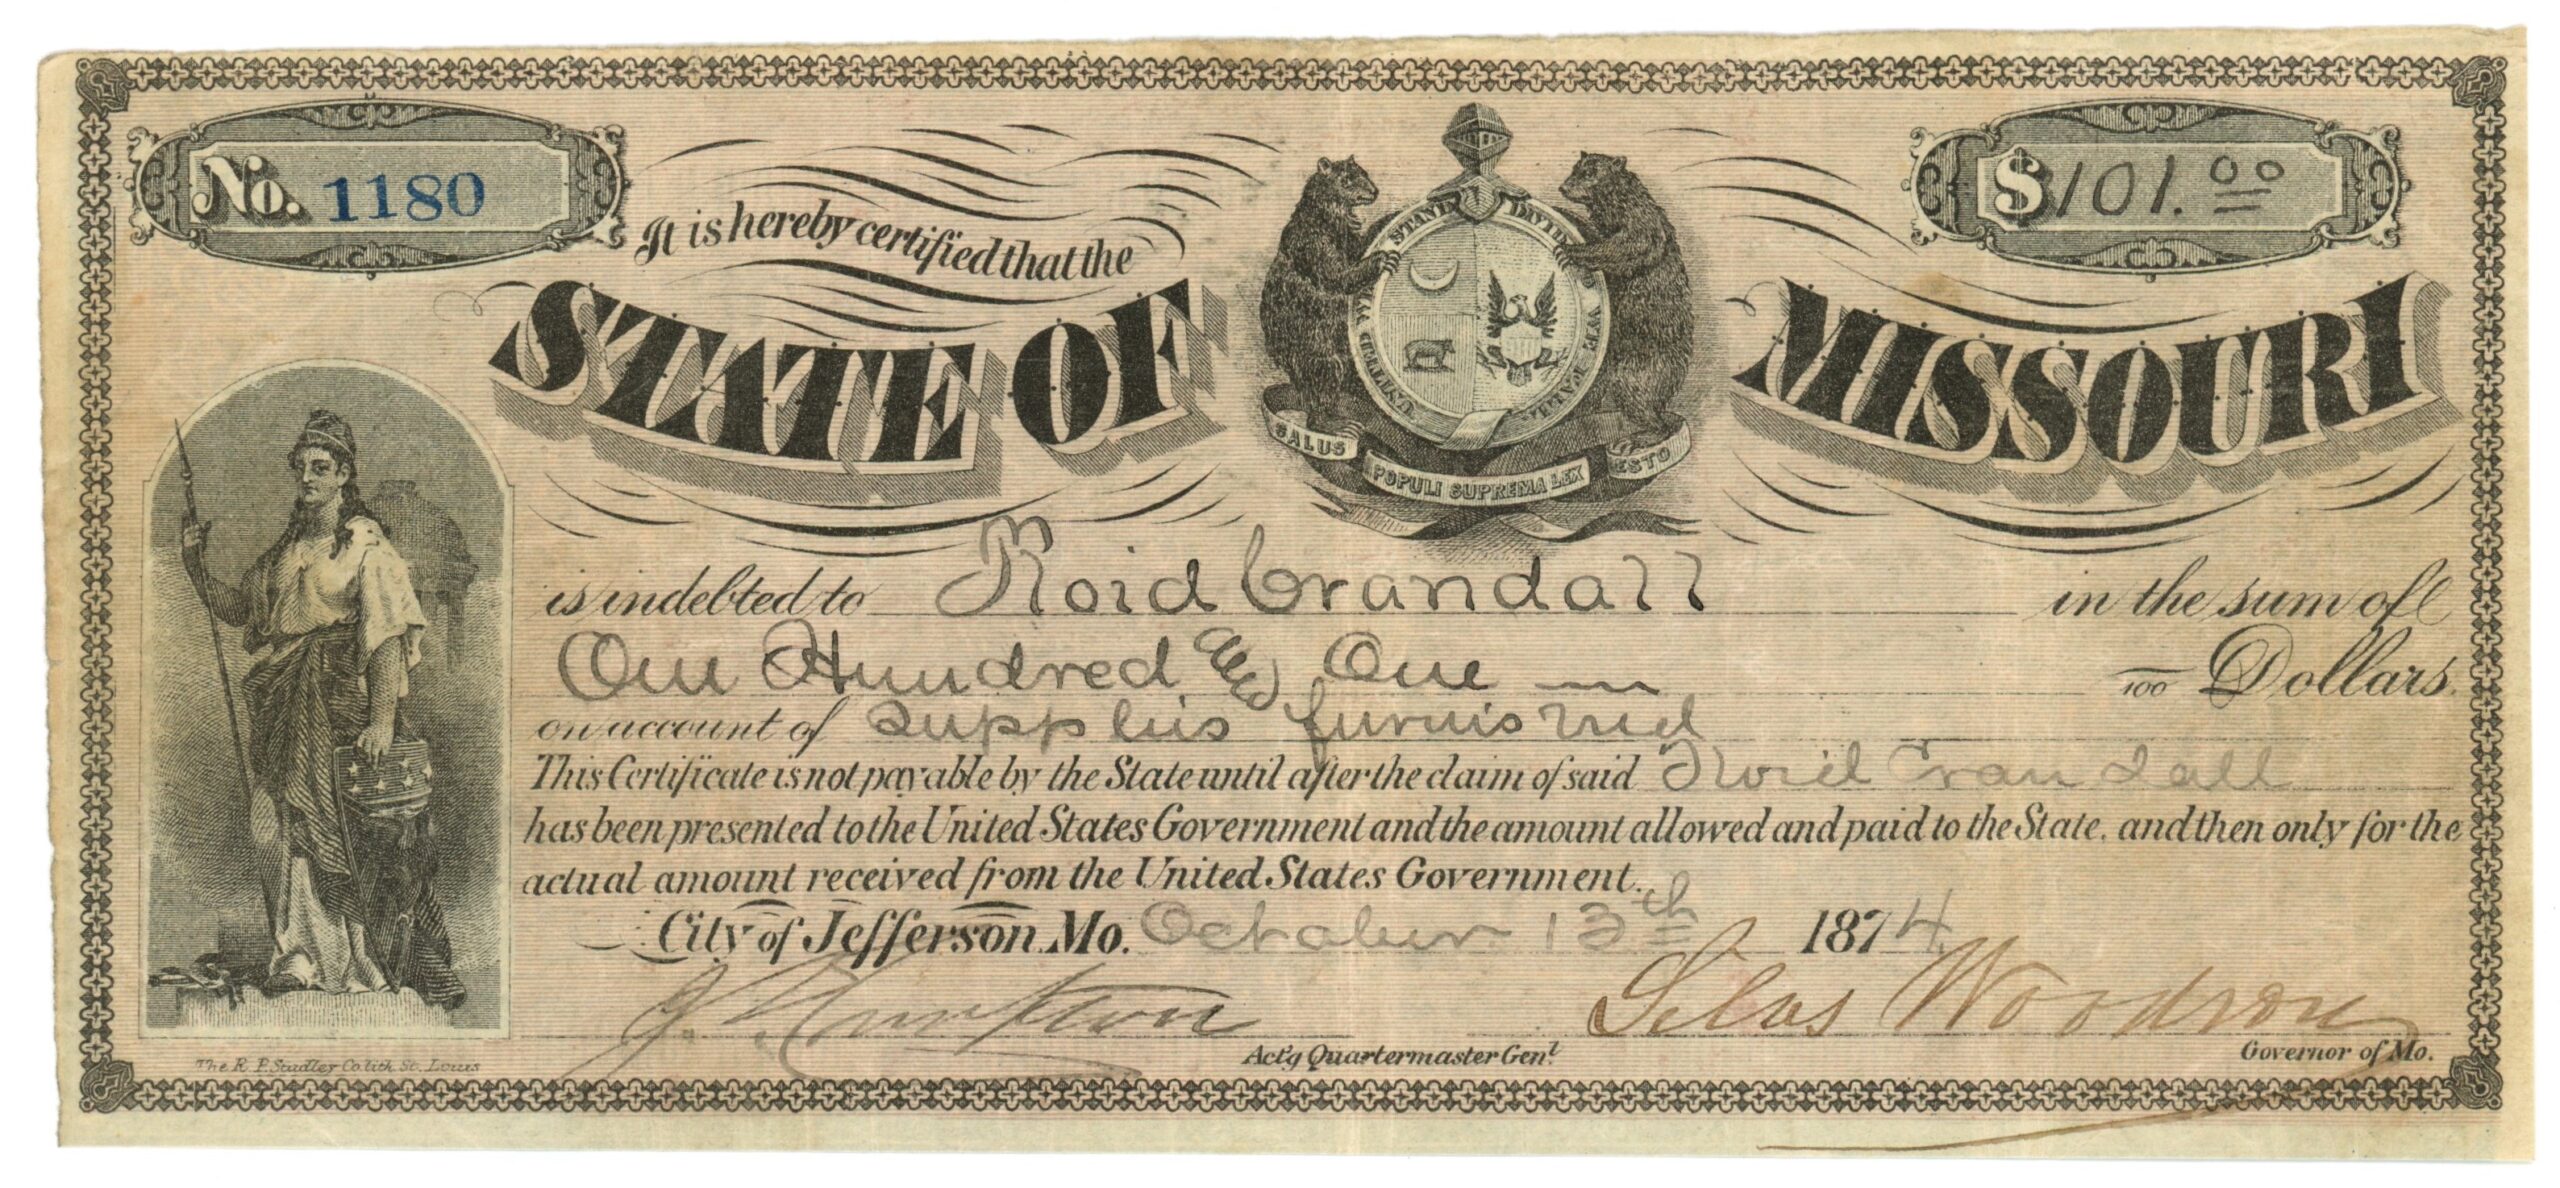 No. 1180
$101.00
It is hereby certified that the
STATE OF MISSOURI
UNITED WE STAND DIVIDED WE FALL
SALUS POPULI SUPREMA LEX ESTO
is indebted to Roid Crandall in the sum of
One Hundred and One /100 Dollars.
on account of Supplies furnished
This Certificate is not payable by the State until after the claim of said Roid Crandall
has been presented to the United States Government and the amount allowed and paid to the State, and then only for the
actual amount received from the United States Government.
City of Jefferson Mo. October 13th 1874
Silas Woodson
Act'g Quartermaster Genl. Governor of Mo.
The R. P. Studley Co. lith. St. Louis